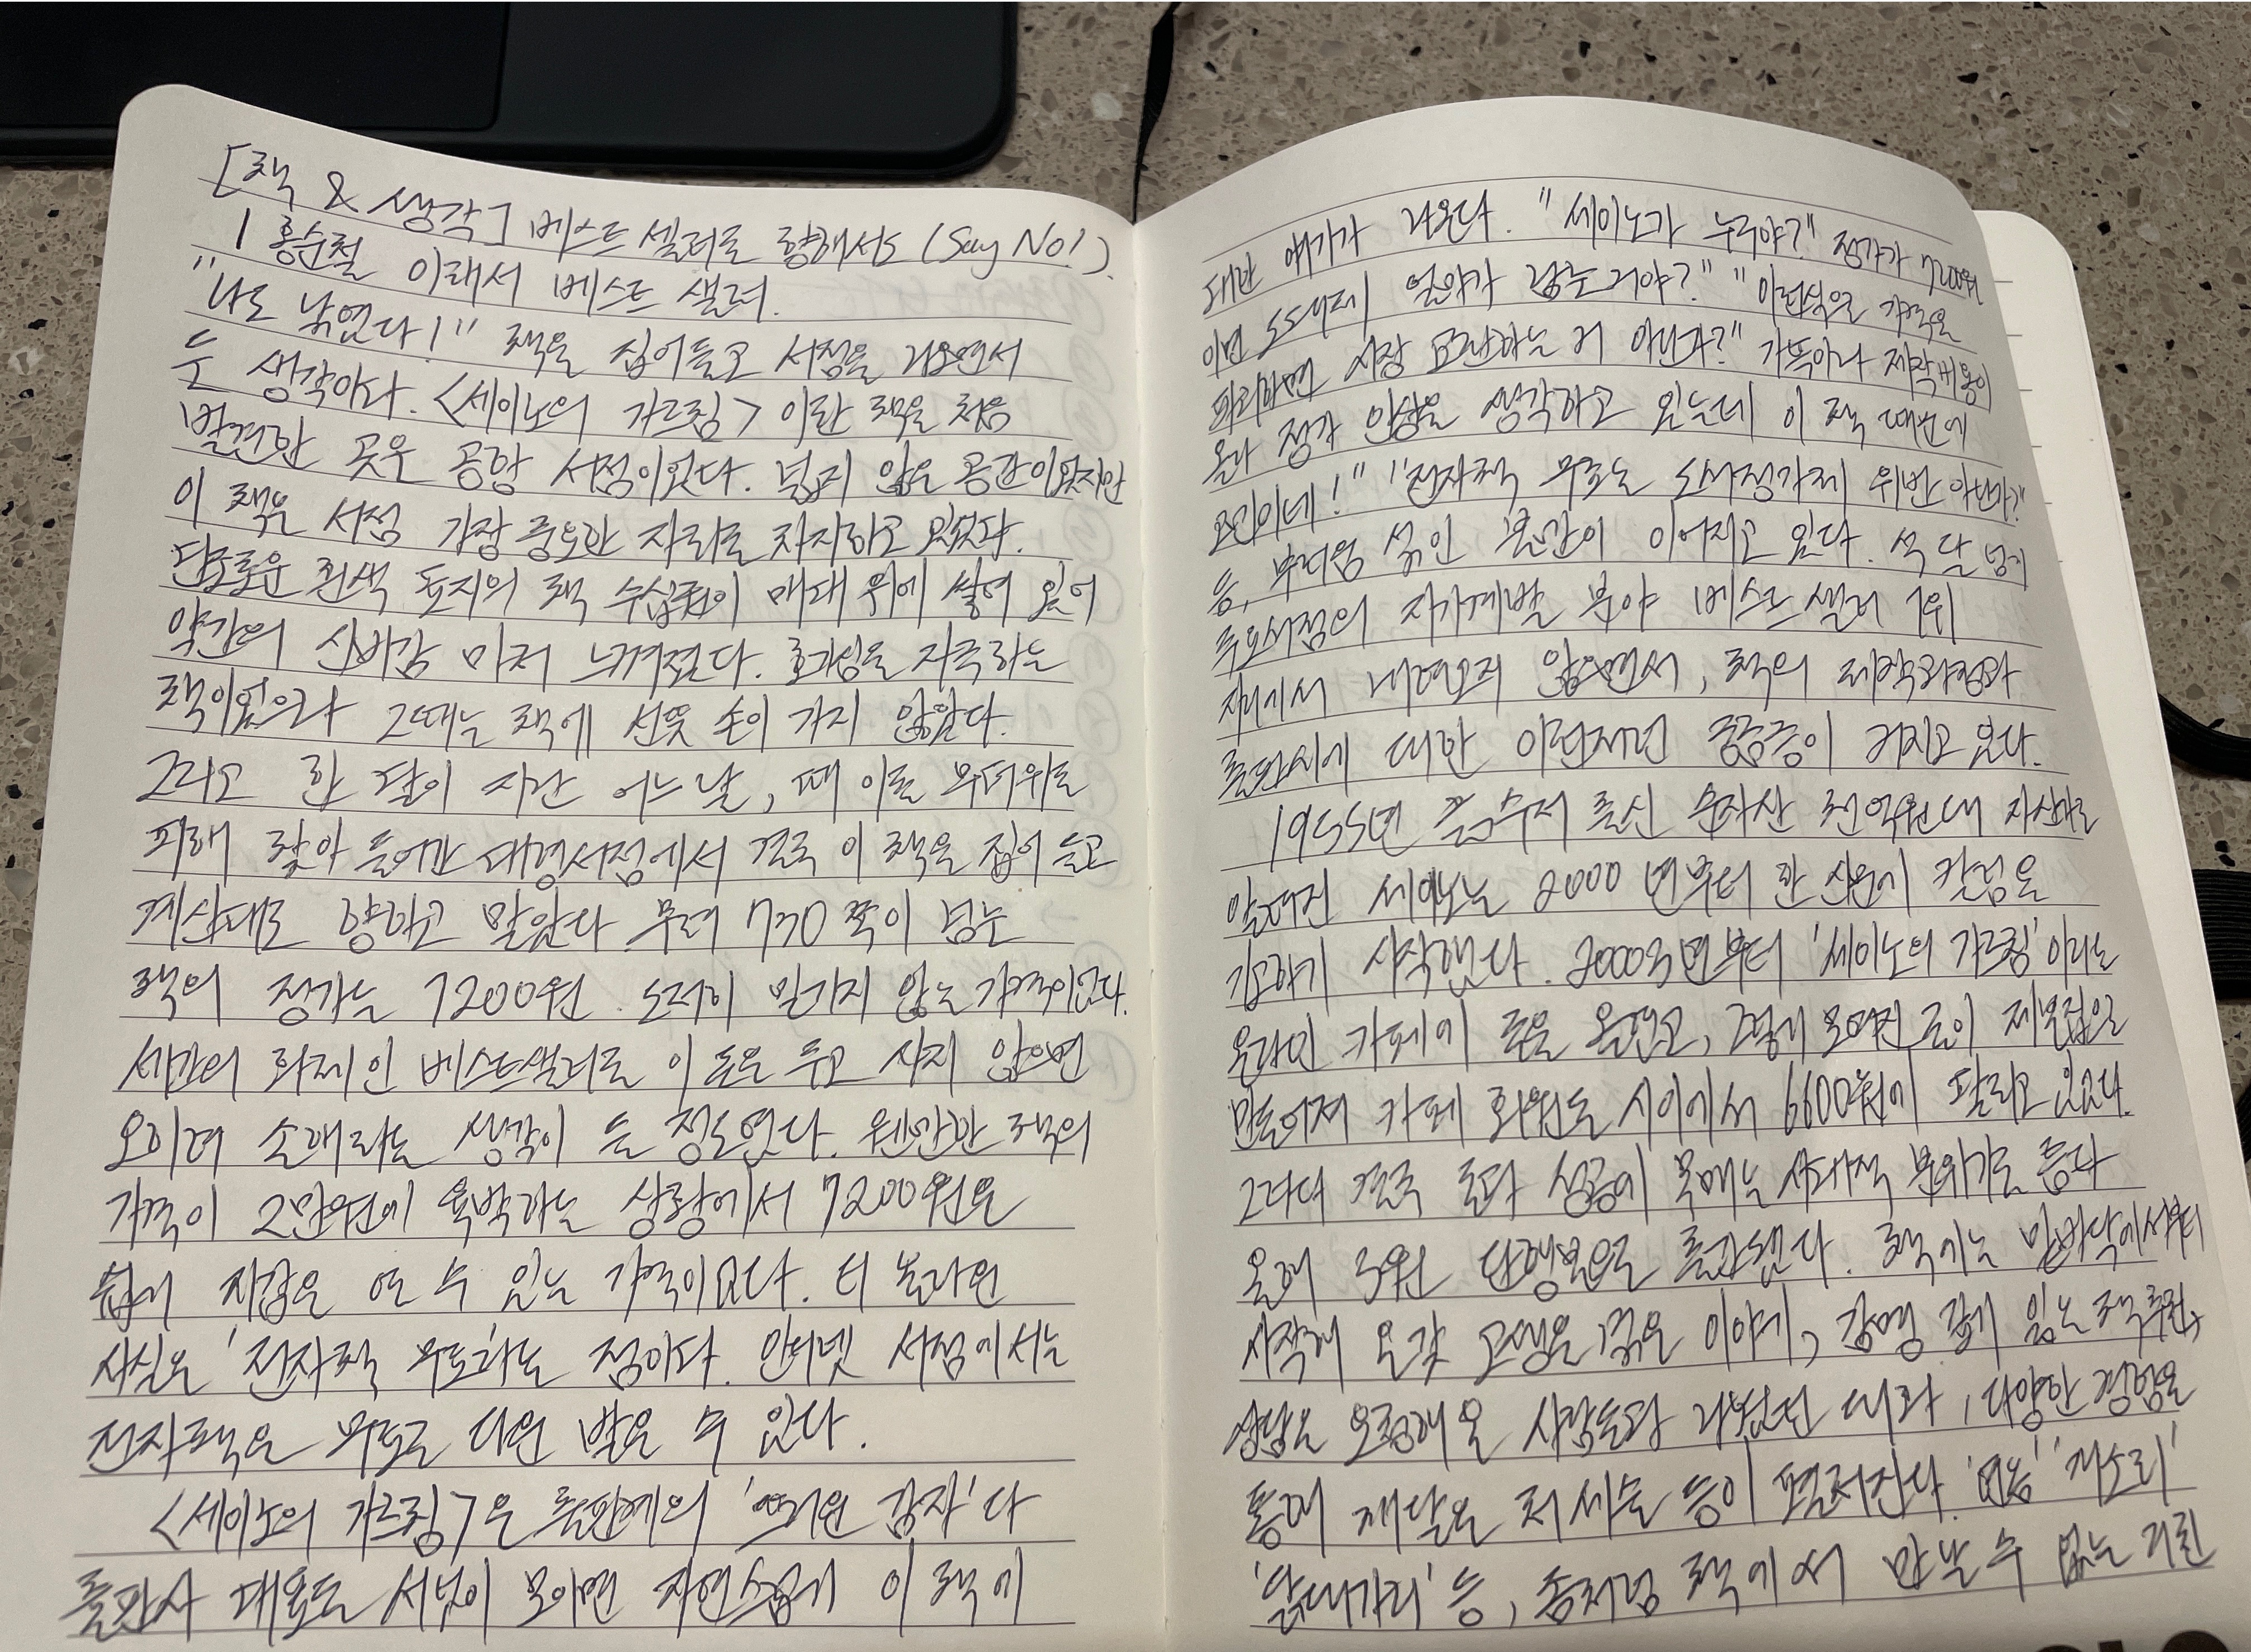 [책 & 생각] 베스트셀러를 향해서도 (Say No!)
| 홍순철 이래서 베스트 셀러.
"나도 낚였다!" 책을 집어들고 서점을 나오면서
든 생각이다. <세이노의 가르침> 이란 책을 처음
발견한 곳은 공항 서점이었다. 넓지 않은 공간이었지만
이 책은 서점 가장 중요한 자리를 차지하고 있었다.
단조로운 흰색 표지의 책 수십권이 매대 위에 쌓여 있어
약간의 신비감 마저 느껴졌다. 호기심을 자극하는
책이었으나 그때는 책에 선뜻 손이 가지 않았다.
그리고 한 달이 지난 어느 날, 때 이른 무더위를
피해 찾아 들어간 대형서점에서 결국 이 책을 집어 들고
계산대로 향하고 말았다 무려 730 쪽이 넘는
책의 정가는 7200원. 도저히 믿기지 않는 가격이었다.
세간의 화제인 베스트셀러를 이 돈을 주고 사지 않으면
오히려 손해라는 생각이 들 정도였다. 웬만한 책의
가격이 2만원에 육박하는 상황에서 7200원은
쉽게 지갑을 열 수 있는 가격이었다. 더 놀라운
사실은 '전자책 무료'라는 점이다. 인터넷 서점에서는
전자책은 무료로 다운 받을 수 있다.
<세이노의 가르침>은 출판계의 '뜨거운 감자'다
출판사 대표들 서넛이 모이면 자연스럽게 이 책에
대한 얘기가 나온다. "세이노가 누구야?" 정가가 7200원
이면 도대체 얼마가 남는거야?" "이런식으로 가격을
파괴하면 시장 교란하는 거 아닌가?" 가뜩이나 제작비용이
올라 정가 인상을 생각하고 있는데 이 책 때문에
고민이네!" "전자책 무료는 도서정가제 위반 아닌가?"
등, 부러움 섞인 불만이 이어지고 있다. 석 달 넘게
주요서점의 자기계발 분야 베스트셀러 1위
자리에서 내려오지 않으면서, 책의 제작과정과
출판사에 대한 이런저런 궁금증이 커지고 있다.
1955년 흙수저 출신 순자산 천억원대 자산가로
알려진 세이노는 2000년부터 한 신문에 칼럼을
기고하기 시작했다. 2000년부터 '세이노의 가르침'이라는
온라인 카페에 글을 올렸고, 그렇게 모여진 글이 제본집으로
만들어져 카페 회원들 사이에서 6600원에 팔리고 있었다.
그러다 결국 돈과 성공에 목매는 사회적 분위기를 틈타
올해 3월 단행본으로 출간됐다. 책에는 밑바닥에서부터
시작해 온갖 고생을 겪은 이야기, 감명 깊게 읽은 책 추천,
상담을 요청해 온 사람들과 나눴던 대화, 다양한 경험을
통해 깨달은 처세술 등이 펼쳐진다. '개소리'
'닭대가리' 등, 좀처럼 책에서 만날 수 없는 거친